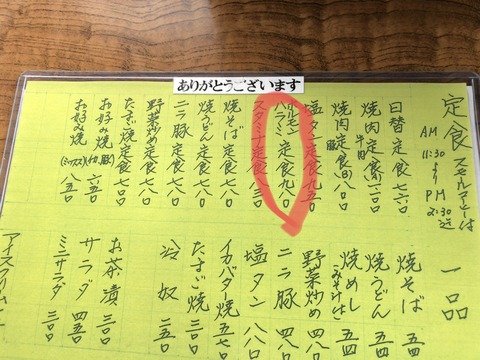 ありがとうございます
定食
AM
11:30
より
PM
2:30
迄
日替定食 七六〇
焼肉定食
牛肉
焼肉定食
豚
塩タン定食 九五〇
ホルモン
ハラミ定食 九八〇
スタミナ定食 八三〇
焼そば定食 七〇〇
焼うどん定食 七〇〇
ニラ豚定食 七八〇
野菜炒め定食 七八〇
たまご焼定食 七八〇
お好み焼
六五〇
お好み焼
(ミックス)
八五〇
一品
焼そば 五四
焼うどん 五四
焼めし 五四
みそ汁付
野菜炒め 四八〇
ニラ豚 四八〇
塩タン 八八〇
イカバター焼 五七〇
たまご焼 三五〇
冷奴 二五〇
お茶漬 三〇〇
サラダ 四五〇
ミニサラダ 三〇〇
アイスクリーム